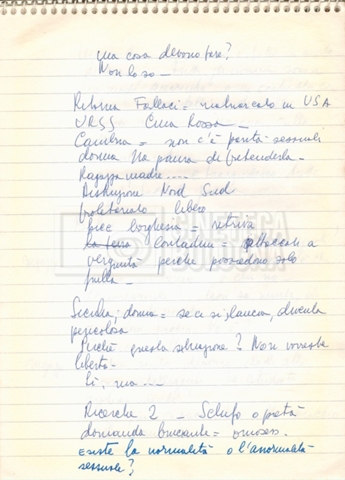 ma cosa devono fare?
Non lo so —
Ritorna Fallaci = matriarcato in USA
URSS Cina Rossa —
Calabria = non c'è parità sessuali
donna ha paura di pretenderla —
Ragazza madre....
Distinzione Nord Sud
proletariato libero
picc borghesia = retriva
contadini = attaccati a
verginità perché possiedono solo
quella —
Sicilia; donna = se ci si slancia, diventa
pericolosa
Perché questa situazione? Non vorreste
libertà —
Sì, ma....
Ricerche 2 — Schifo o pietà
domanda bruciante = omoses.
esiste la normalità o l'anormalità
sessuale?
CINETECA
BOLOGNA